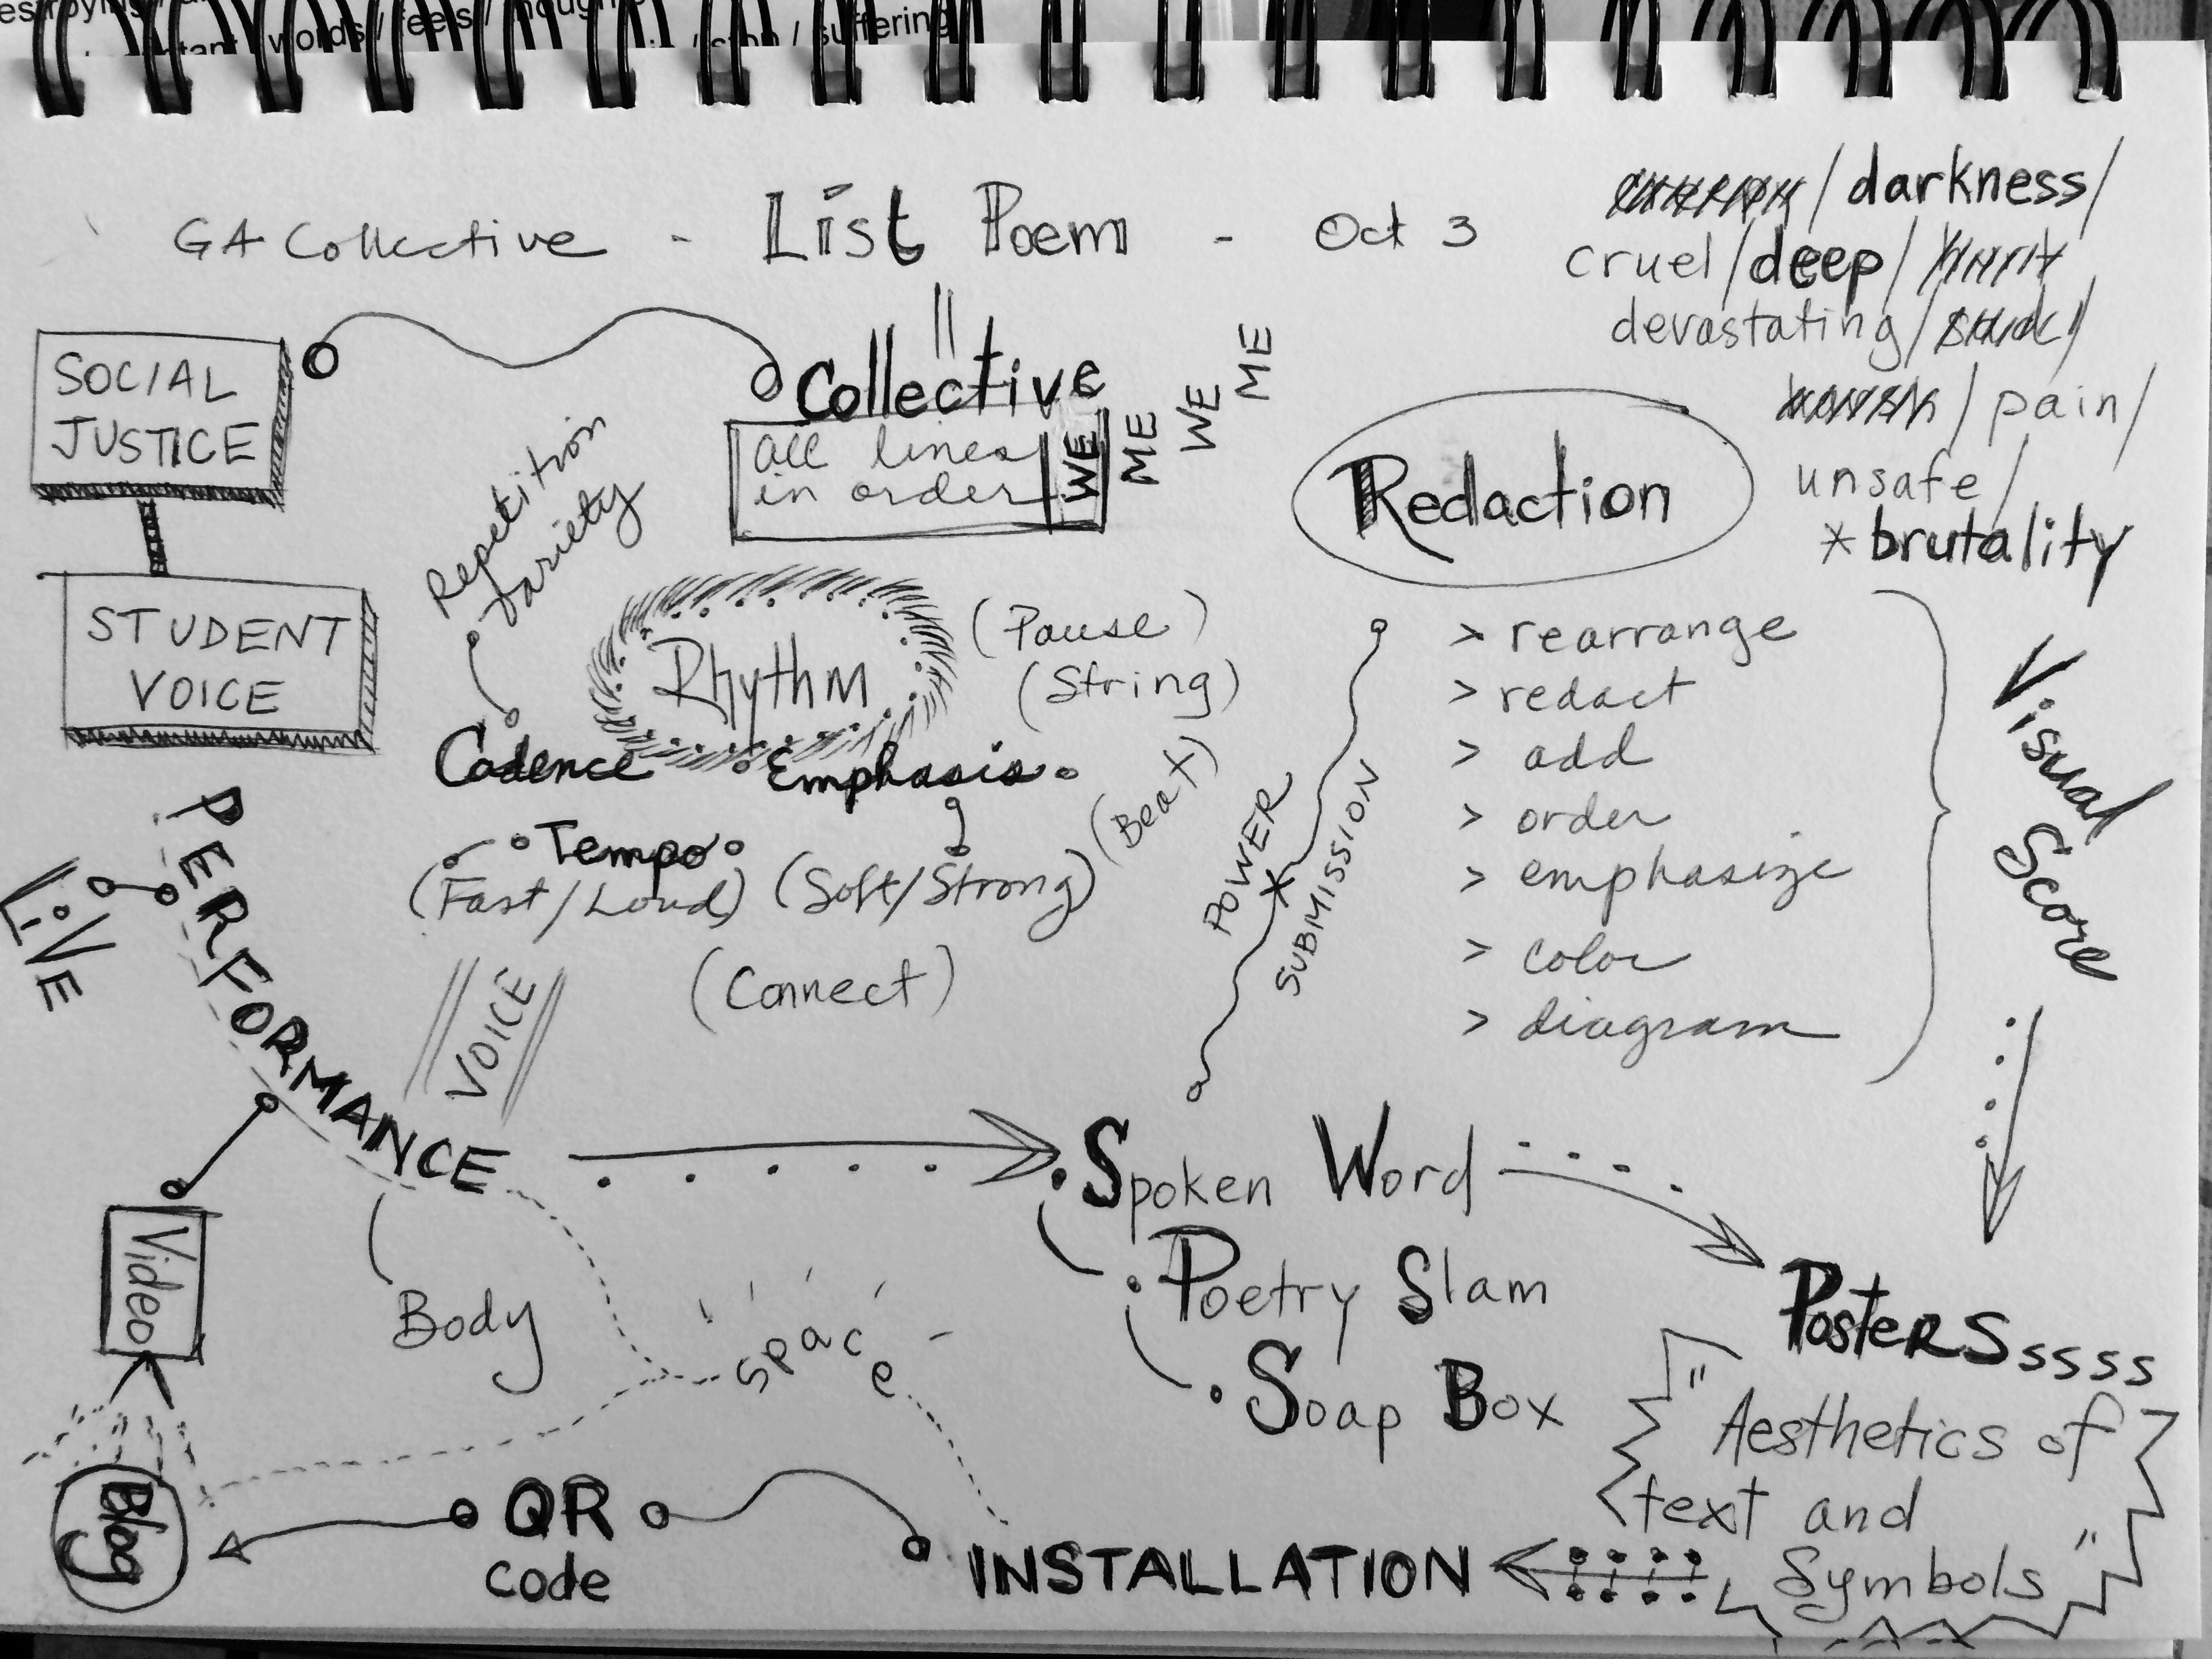 words / feels /
/ suffering
GA Collective - List Poem - Oct 3
/ darkness /
cruel / deep /
devastating /
/ pain /
unsafe /
* brutality
SOCIAL
JUSTICE
STUDENT
VOICE
Collective
all lines
in order
WE
ME
WE
ME
Redaction
Repetition
Variety
Rhythm
(Pause)
(String)
Cadence
Emphasis
(Beat)
Tempo
(Fast/Loud) (Soft/Strong)
(Connect)
POWER
SUBMISSION
> rearrange
> redact
> add
> order
> emphasize
> color
> diagram
Visual
Score
PERFORMANCE
LIVE
VOICE
Body
Video
Blog
space
Spoken Word
Poetry Slam
Soap Box
PosterSssss
"Aesthetics of
text and
Symbols"
INSTALLATION
QR
Code